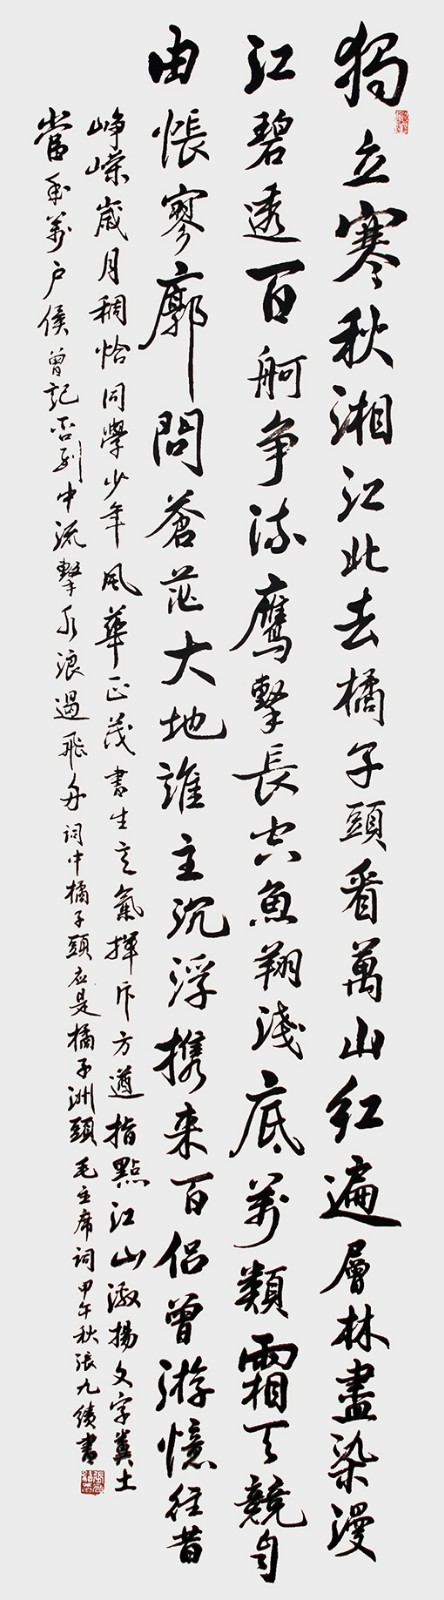 獨立寒秋湘江北去橘子頭看萬山紅遍層林盡染漫
江碧透百舸争流鹰擊長空魚翔淺底萬類霜天競自
由悵寥廓問蒼茫大地誰主沉浮携来百侣曾游憶往昔
峥嵘歲月稠恰同學少年風華正茂書生意氣揮斥方遒指點江山激揚文字糞土
當年萬户侯曾記否到中流擊水浪遏飛舟詞中橘子頭应是橘子洲頭毛主席詞甲午秋張九績書